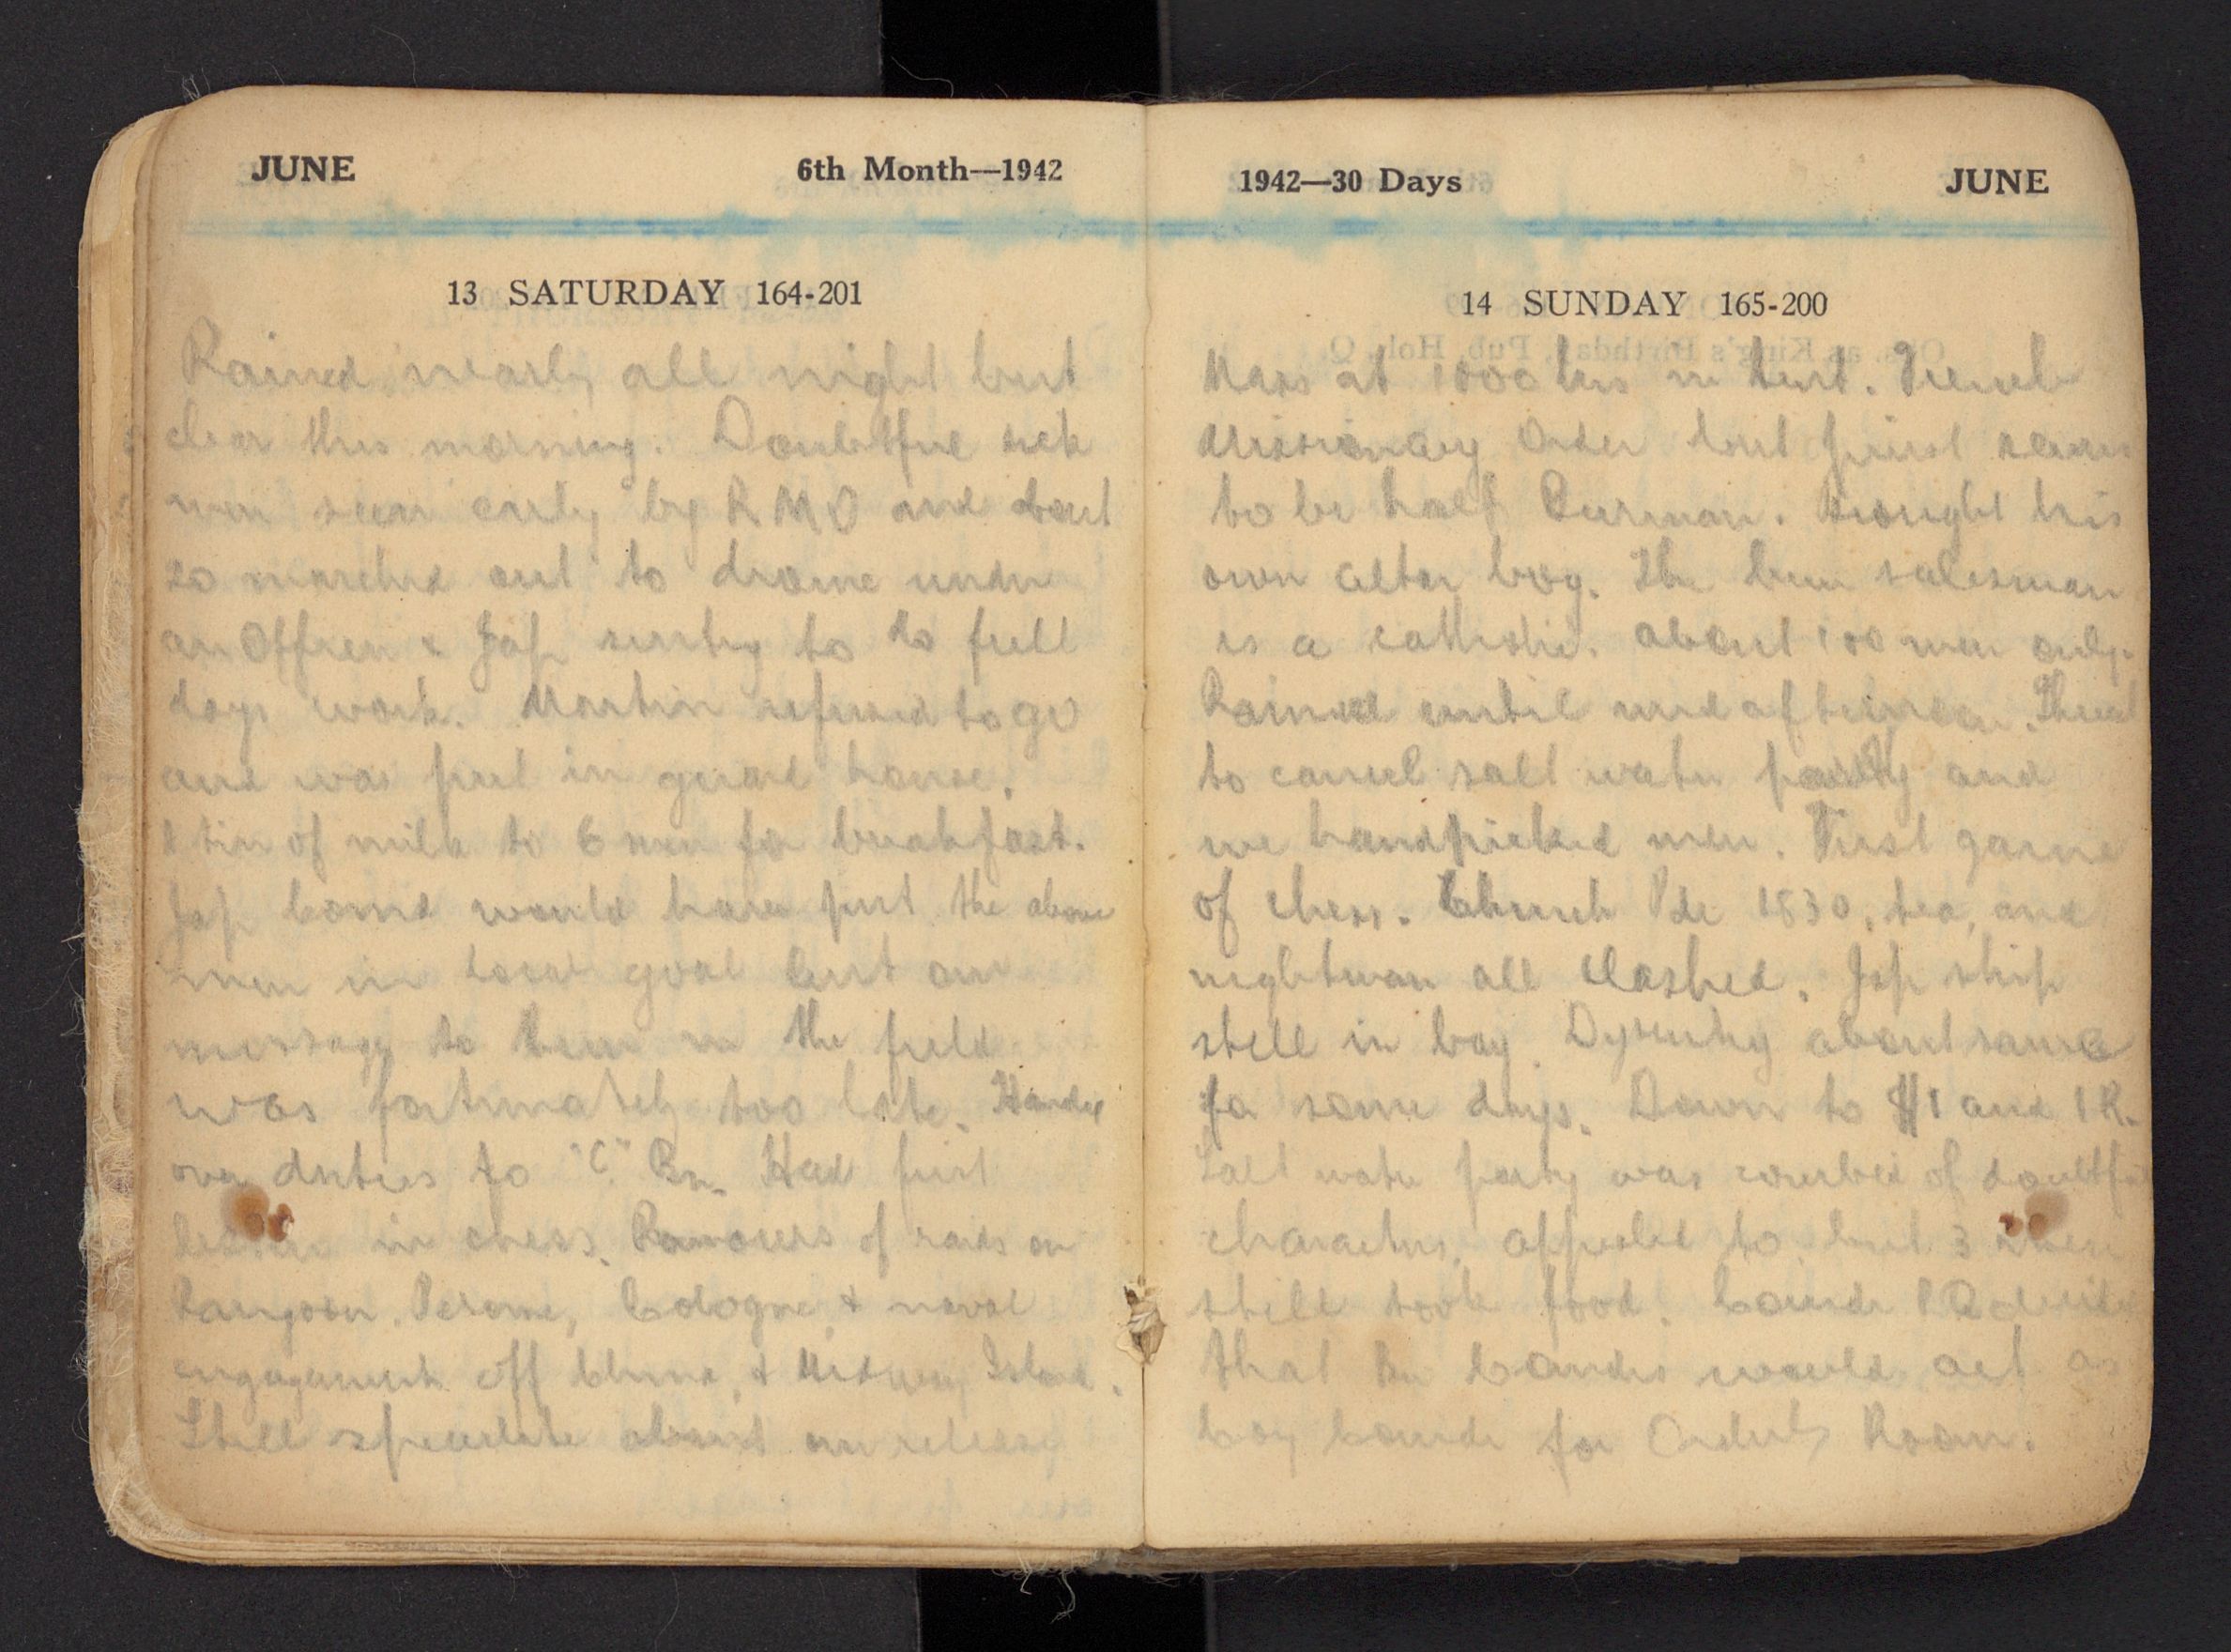 JUNE 6th Month—1942
13 SATURDAY 164-201
Rained nearly all night but
clear this morning. Doubtful sick
men seen early by RMO and about
20 marched out to drome under
an Officer & Jap sentry to do full
days work. Martin refused to go
and was put in guard house.
1 tin of milk to 6 men for breakfast.
Jap Comd would have put the above
men in local goal but our
message to them in the field
was fortunately too late. Handed
over duties to "C" Bn. Had first
lesson in chess. Rumours of raids on
Rangoon, Cologne, & naval
engagement off China, & Midway Island.
Still speculate about our release
1942—30 Days JUNE
14 SUNDAY 165-200
Mass at 1000 hrs in tent. French
Missionary Order but priest seems
to be half Burman. Brought his
own altar boy. The bun salesman
is a catholic. About 100 men only.
Rained until mid afternoon.
to cancel salt water party and
we handpicked men. First game
of chess. Church Pde 1830, tea, and
nightman all clashed. Jap ship
still in bay. Dysentry about same
for some days. Down to $1 and 1 R.
Salt water party was of doubtful
characters, appealed to but 3 men
still took food. Comdr
that Bn Comdrs would act as
Coy Comdr for Orderly Room.